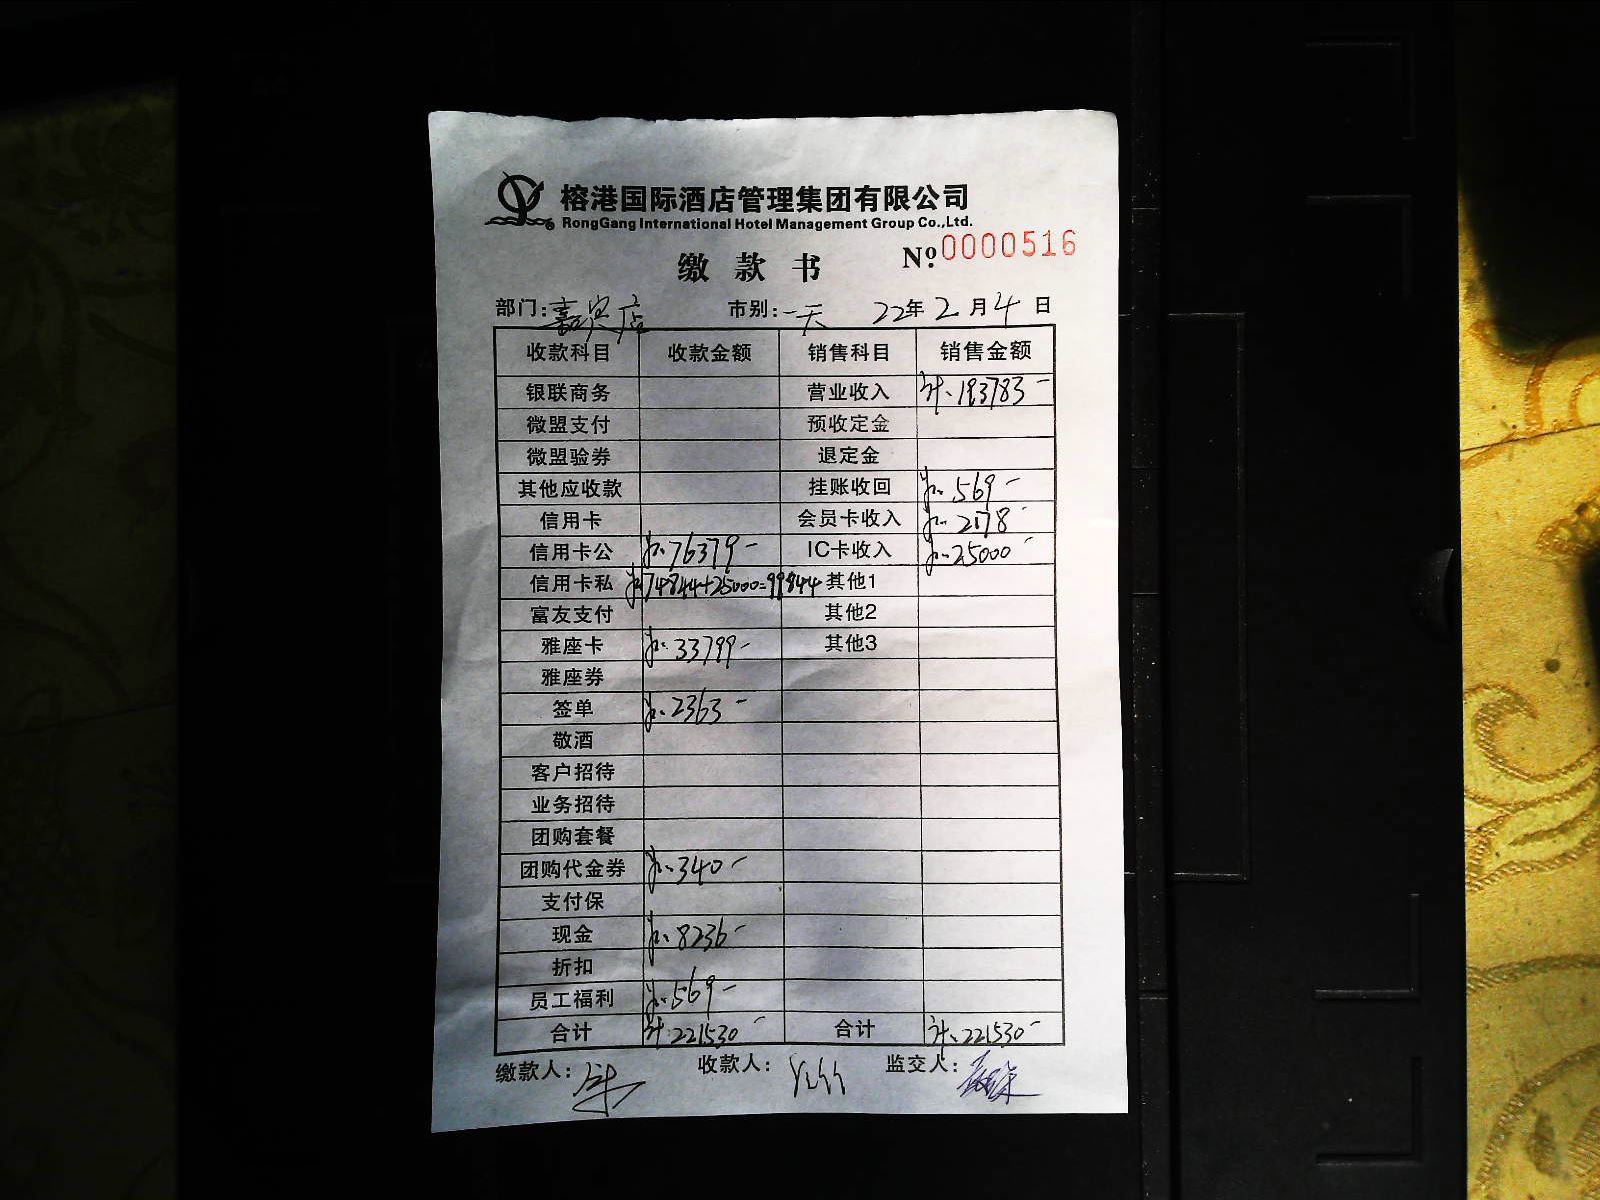 榕港国际酒店管理集团有限公司
RongGang International Hotel Management Group Co.,Ltd.
缴款书 Nº.0000516
部门:嘉宾店 市别:一天 22年2月4日
收款科目 收款金额 销售科目 销售金额
银联商务 营业收入 计、193783-
微盟支付 预收定金
微盟验券 退定金
其他应收款 挂账收回 569-
信用卡 会员卡收入 2178-
信用卡公 76379- IC卡收入 25000-
信用卡私 74844+25000=99844 其他1
富友支付 其他2
雅座卡 33799- 其他3
雅座券
签单 2363-
敬酒
客户招待
业务招待
团购套餐
团购代金券 340-
支付保
现金 8236-
折扣
员工福利 569-
合计 计、221530- 合计 计、221530-
缴款人: 收款人: 监交人: